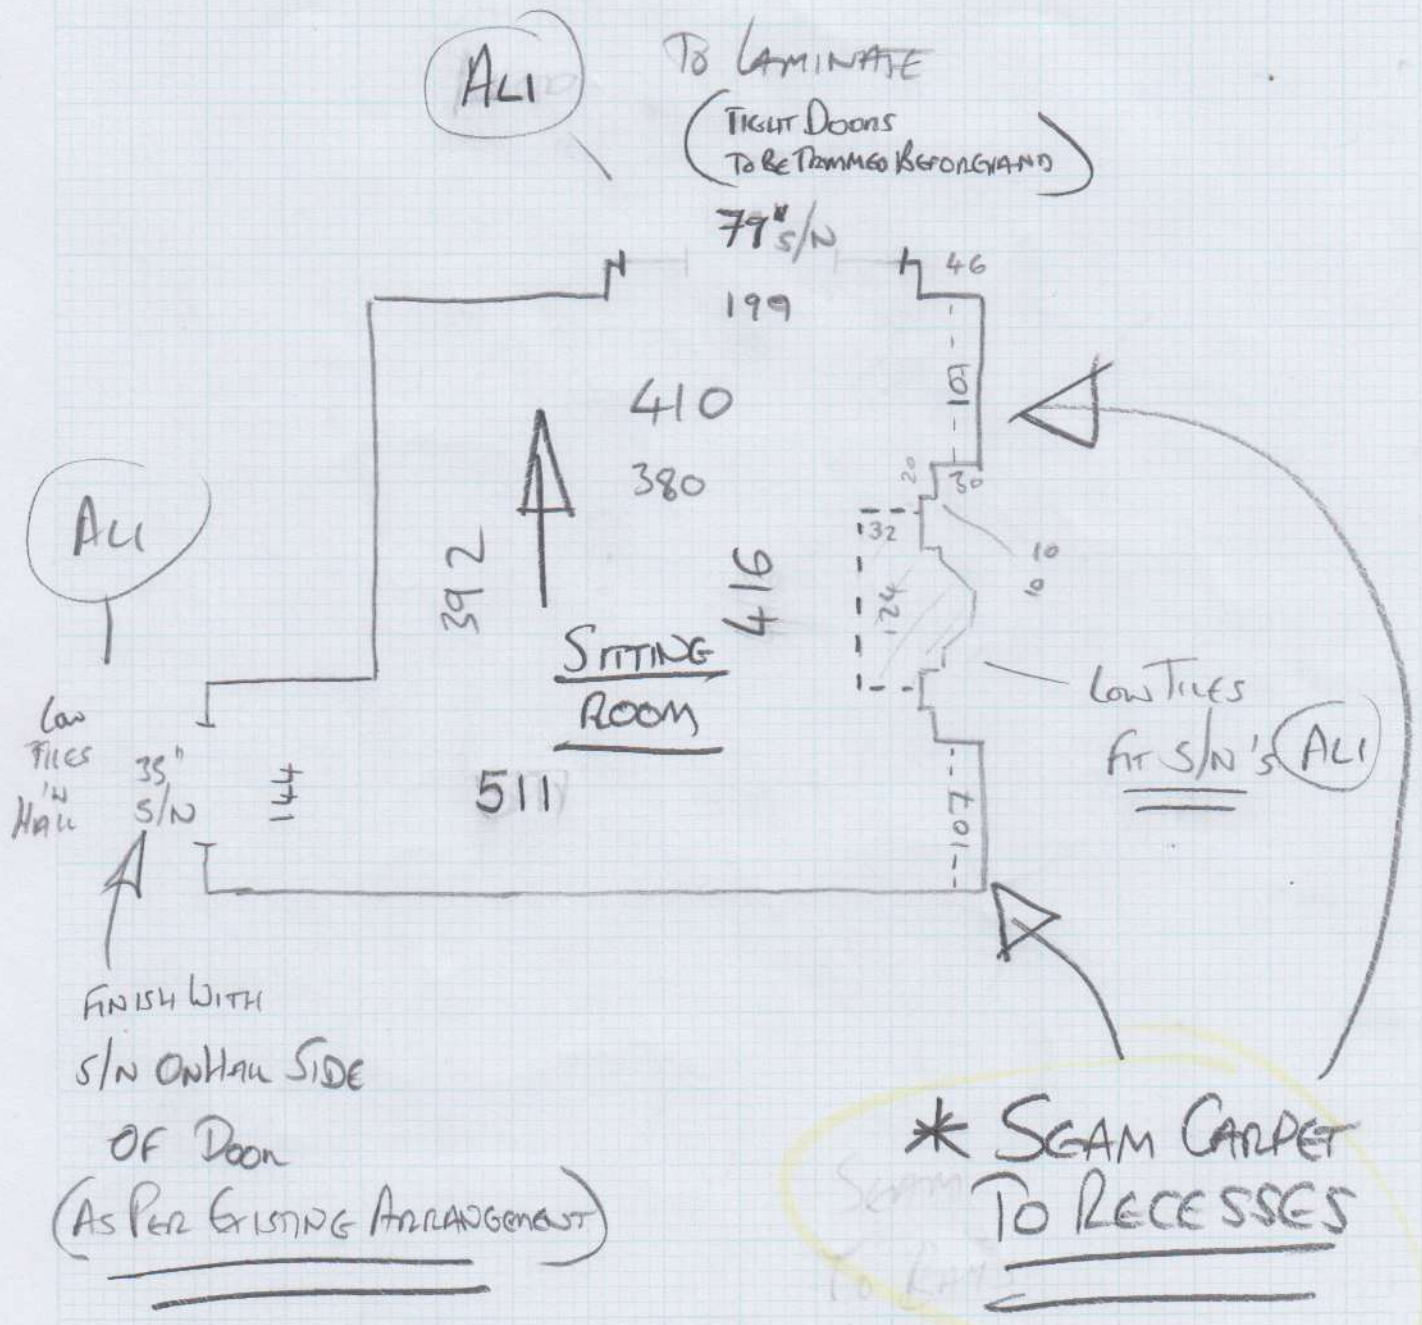 ALI
TO LAMINATE
(TIGHT DOORS
TO BE TRIMMED BEFOREHAND)
79" S/N
46
199
107
410
380
20
30
32
10
10
392
416
124
ALI
SITTING
ROOM
LOW TILES
FIT S/N'S ALI
LOW
TILES
IN
HALL
35"
S/N
144
511
107
FINISH WITH
S/N ON HALL SIDE
OF DOOR
(AS PER EXISTING ARRANGEMENT)
* SEAM CARPET
TO RECESSES
SEAM
TO